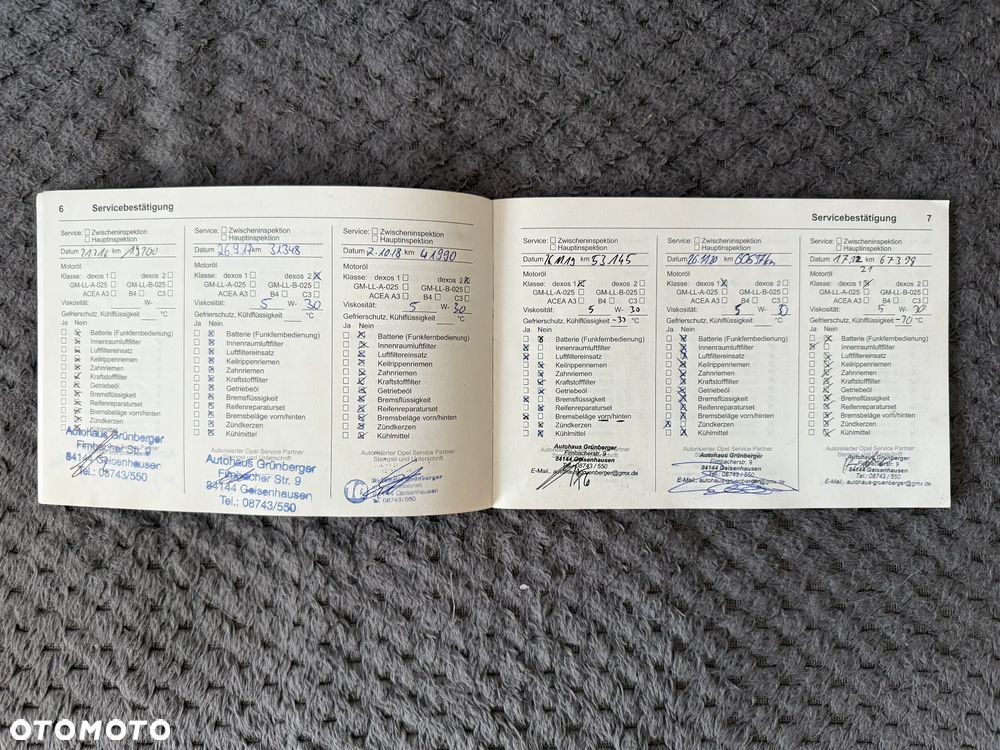 6 Servicebestätigung
Service: Zwischeninspektion
Hauptinspektion
Datum km 19200
Motoröl
Klasse: dexos 1 dexos 2
GM-LL-A-025 GM-LL-B-025
ACEA A3 B4 C3
Viskosität: W-
Gefrierschutz, Kühlflüssigkeit °C
Ja Nein
Batterie (Funkfernbedienung)
Innenraumluftfilter
Luftfiltereinsatz
Keilrippenriemen
Zahnriemen
Kraftstofffilter
Getriebeöl
Bremsflüssigkeit
Reifenreparaturset
Bremsbeläge vorn/hinten
Zündkerzen
Autohaus Grünberger
Fimbacher Str. 9
84144 Geisenhausen
Tel.: 08743/550
Service: Zwischeninspektion
Hauptinspektion
Datum 26.9.17 km 31348
Motoröl
Klasse: dexos 1 dexos 2
GM-LL-A-025 GM-LL-B-025
ACEA A3 B4 C3
Viskosität: 5 W- 30
Gefrierschutz, Kühlflüssigkeit °C
Ja Nein
Batterie (Funkfernbedienung)
Innenraumluftfilter
Luftfiltereinsatz
Keilrippenriemen
Zahnriemen
Kraftstofffilter
Getriebeöl
Bremsflüssigkeit
Reifenreparaturset
Bremsbeläge vorn/hinten
Zündkerzen
Kühlmittel
Autorisierter Opel Service Partner
Stempel und Unterschrift
Autohaus Grünberger
Fimbacher Str. 9
84144 Geisenhausen
Tel.: 08743/550
Service: Zwischeninspektion
Hauptinspektion
Datum 2.10.18 km 41990
Motoröl
Klasse: dexos 1 dexos 2
GM-LL-A-025 GM-LL-B-025
ACEA A3 B4 C3
Viskosität: 5 W- 30
Gefrierschutz, Kühlflüssigkeit °C
Ja Nein
Batterie (Funkfernbedienung)
Innenraumluftfilter
Luftfiltereinsatz
Keilrippenriemen
Zahnriemen
Kraftstofffilter
Getriebeöl
Bremsflüssigkeit
Reifenreparaturset
Bremsbeläge vorn/hinten
Zündkerzen
Kühlmittel
Autorisierter Opel Service Partner
Stempel und Unterschrift
Geisenhausen
Tel. 08743/550
Servicebestätigung 7
Service: Zwischeninspektion
Hauptinspektion
Datum 26.11.19 km 53145
Motoröl
Klasse: dexos 1 dexos 2
GM-LL-A-025 GM-LL-B-025
ACEA A3 B4 C3
Viskosität: 5 W- 30
Gefrierschutz, Kühlflüssigkeit -30 °C
Ja Nein
Batterie (Funkfernbedienung)
Innenraumluftfilter
Luftfiltereinsatz
Keilrippenriemen
Zahnriemen
Kraftstofffilter
Getriebeöl
Bremsflüssigkeit
Reifenreparaturset
Bremsbeläge vorn/hinten
Zündkerzen
Kühlmittel
Autorisierter Opel Service Partner
Autohaus Grünberger
Fimbacherstr. 9
84144 Geisenhausen
08743 / 550
E-Mail.: autohaus-gruenberger@gmx.de
Service: Zwischeninspektion
Hauptinspektion
Datum km
Motoröl
Klasse: dexos 1 dexos 2
GM-LL-A-025 GM-LL-B-025
ACEA A3 B4 C3
Viskosität: 5 W- 30
Gefrierschutz, Kühlflüssigkeit °C
Ja Nein
Batterie (Funkfernbedienung)
Innenraumluftfilter
Luftfiltereinsatz
Keilrippenriemen
Zahnriemen
Kraftstofffilter
Getriebeöl
Bremsflüssigkeit
Reifenreparaturset
Bremsbeläge vorn/hinten
Zündkerzen
Kühlmittel
Autorisierter Opel Service Partner
Autohaus Grünberger
Fimbacherstr. 9
84144 Geisenhausen
08743 / 550
E-Mail.: autohaus-gruenberger@gmx.de
Service: Zwischeninspektion
Hauptinspektion
Datum 17.12 km 67398
21
Motoröl
Klasse: dexos 1 dexos 2
GM-LL-A-025 GM-LL-B-025
ACEA A3 B4 C3
Viskosität: 5 W- 30
Gefrierschutz, Kühlflüssigkeit °C
Ja Nein
Batterie (Funkfernbedienung)
Innenraumluftfilter
Luftfiltereinsatz
Keilrippenriemen
Zahnriemen
Kraftstofffilter
Getriebeöl
Bremsflüssigkeit
Reifenreparaturset
Bremsbeläge vorn/hinten
Zündkerzen
Kühlmittel
Autorisierter Opel Service Partner
84144 Geisenhausen
E-Mail.: autohaus-gruenberger@gmx.de
OTOMOTO